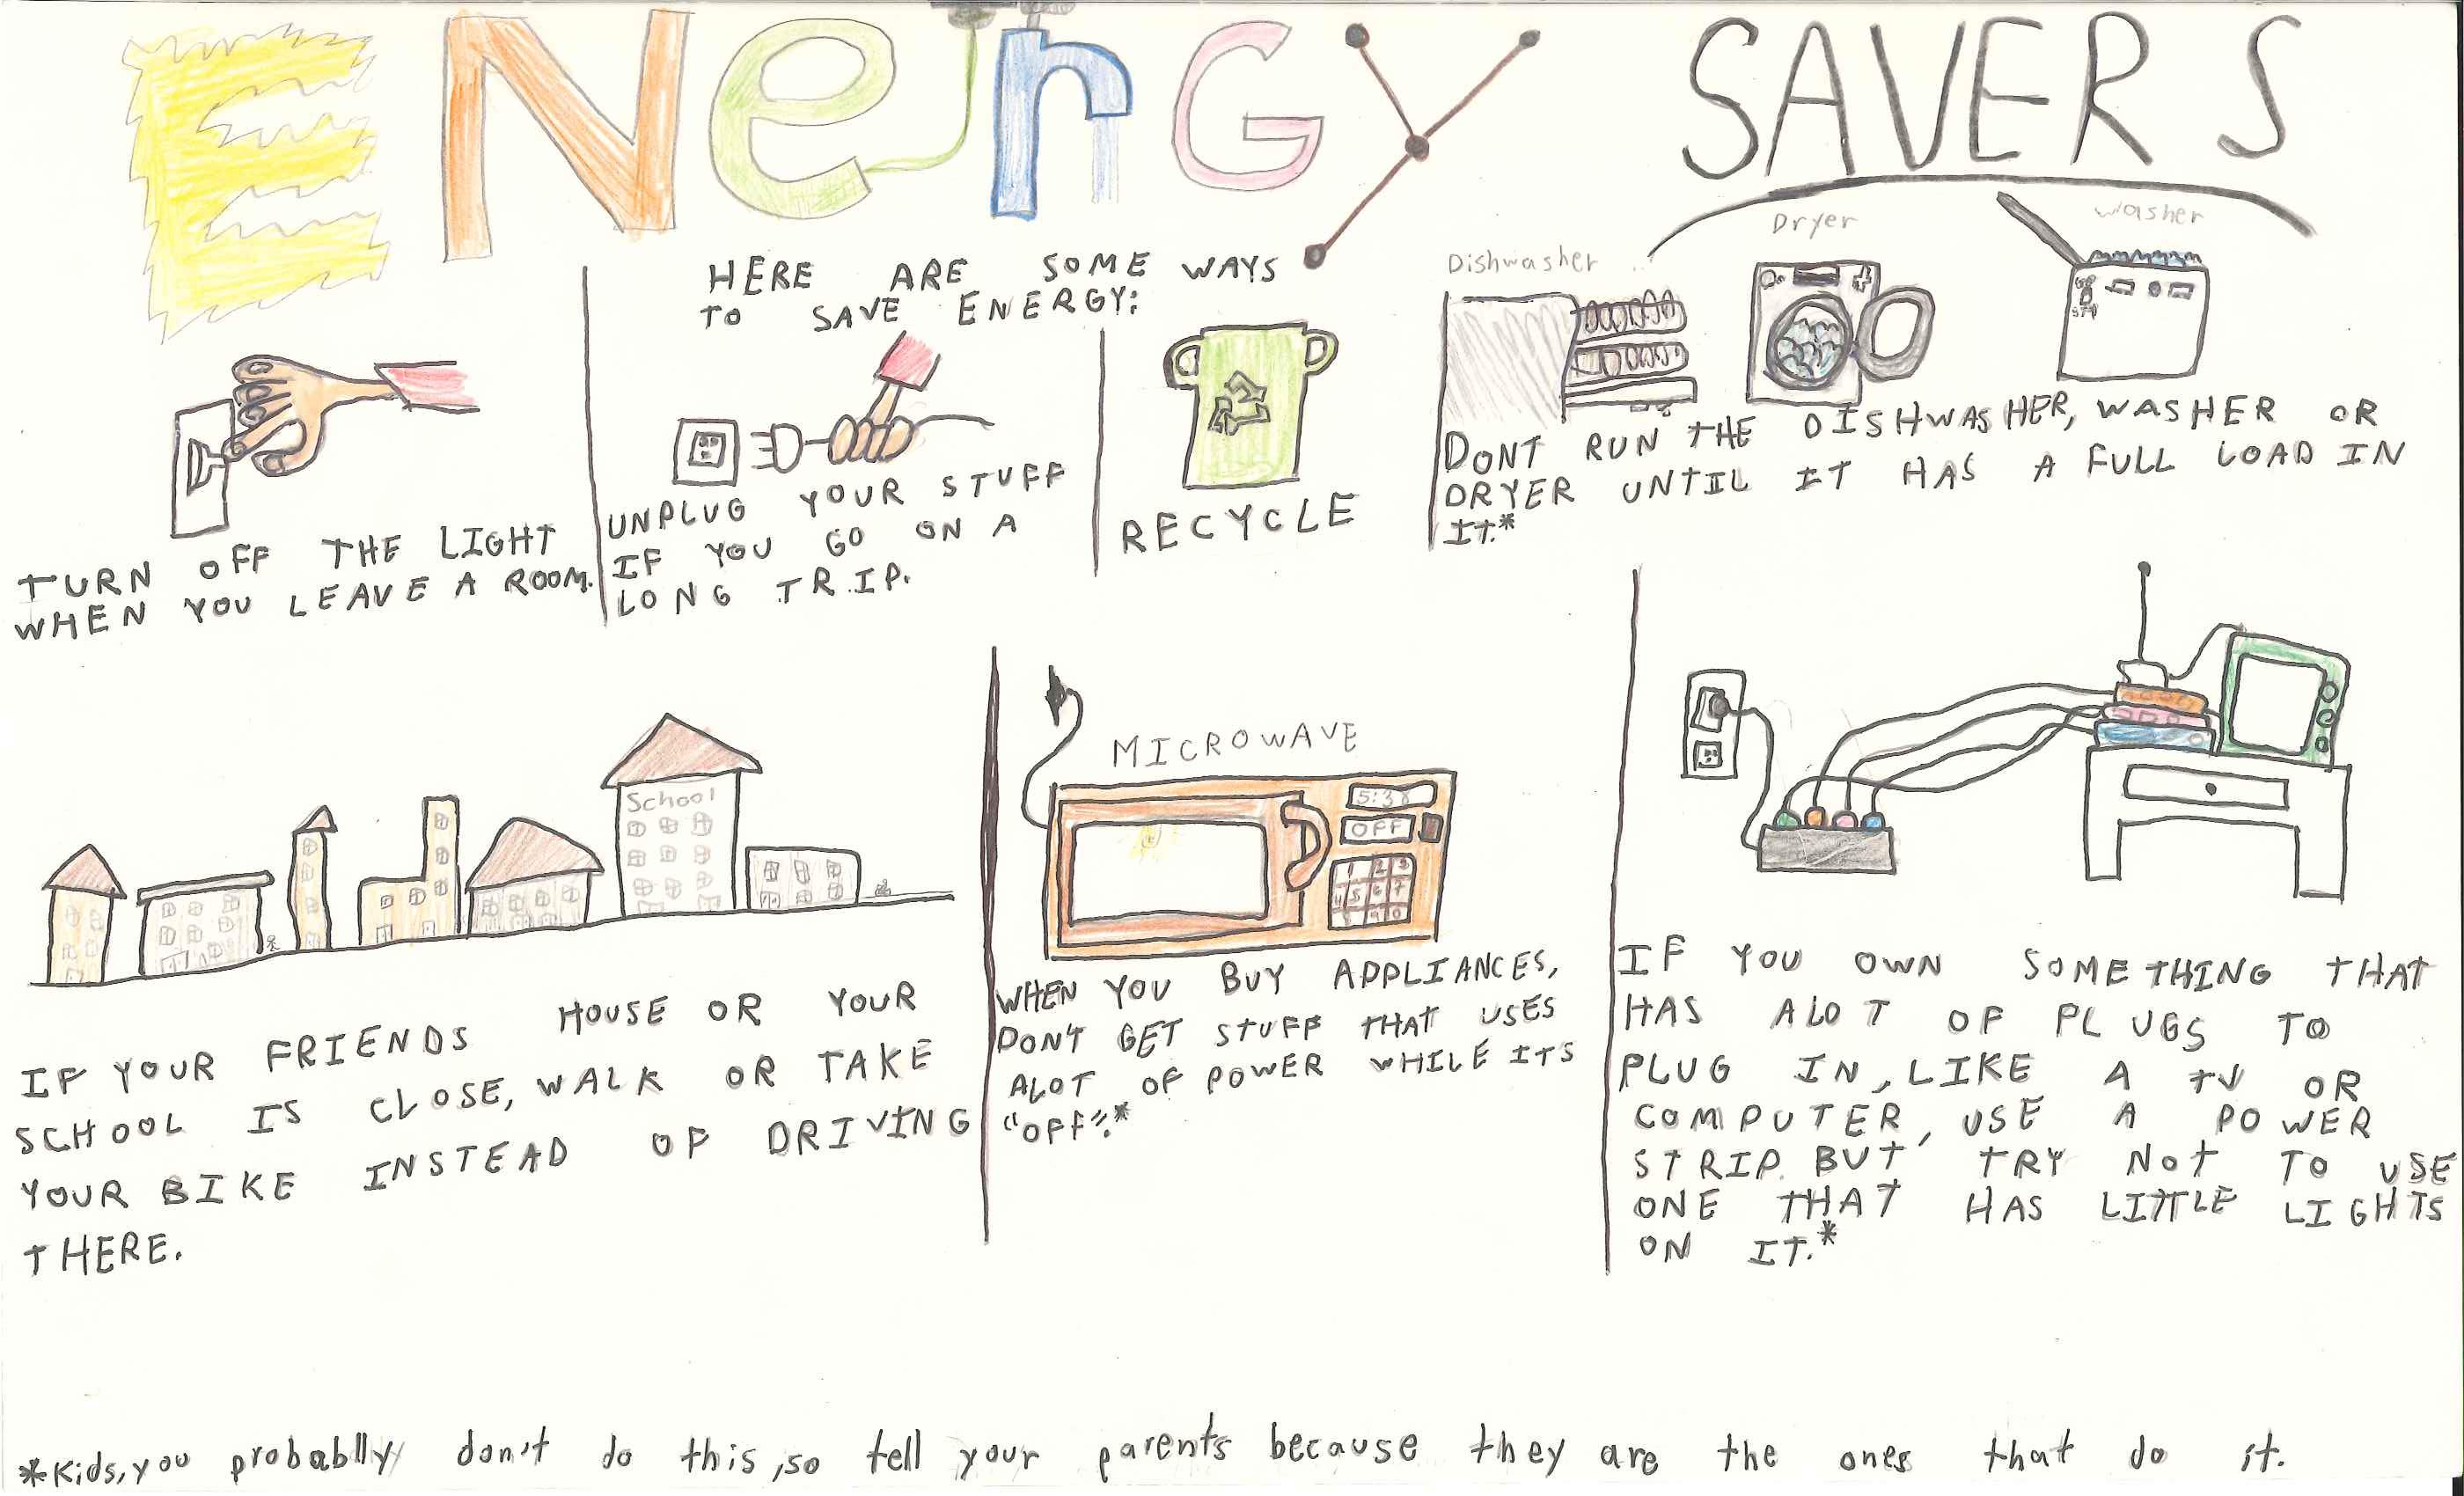 ENeRGY SAVERS
HERE ARE SOME WAYS
TO SAVE ENERGY:
TURN OFF THE LIGHT
WHEN YOU LEAVE A ROOM.
UNPLUG YOUR STUFF
IF YOU GO ON A
LONG TRIP.
RECYCLE
Dishwasher
Dryer
Washer
DONT RUN THE DISHWASHER, WASHER OR
DRYER UNTIL IT HAS A FULL LOAD IN
IT.*
School
IF YOUR FRIENDS HOUSE OR YOUR
SCHOOL IS CLOSE, WALK OR TAKE
YOUR BIKE INSTEAD OF DRIVING
THERE.
MICROWAVE
OFF
1 2 3
4 5 6 7
8 9 0
WHEN YOU BUY APPLIANCES,
DON'T GET STUFF THAT USES
ALOT OF POWER WHILE ITS
"OFF".*
IF YOU OWN SOMETHING THAT
HAS ALOT OF PLUGS TO
PLUG IN, LIKE A TV OR
COMPUTER, USE A POWER
STRIP. BUT TRY NOT TO USE
ONE THAT HAS LITTLE LIGHTS
ON IT.*
*Kids, you probablly don't do this, so tell your parents because they are the ones that do it.